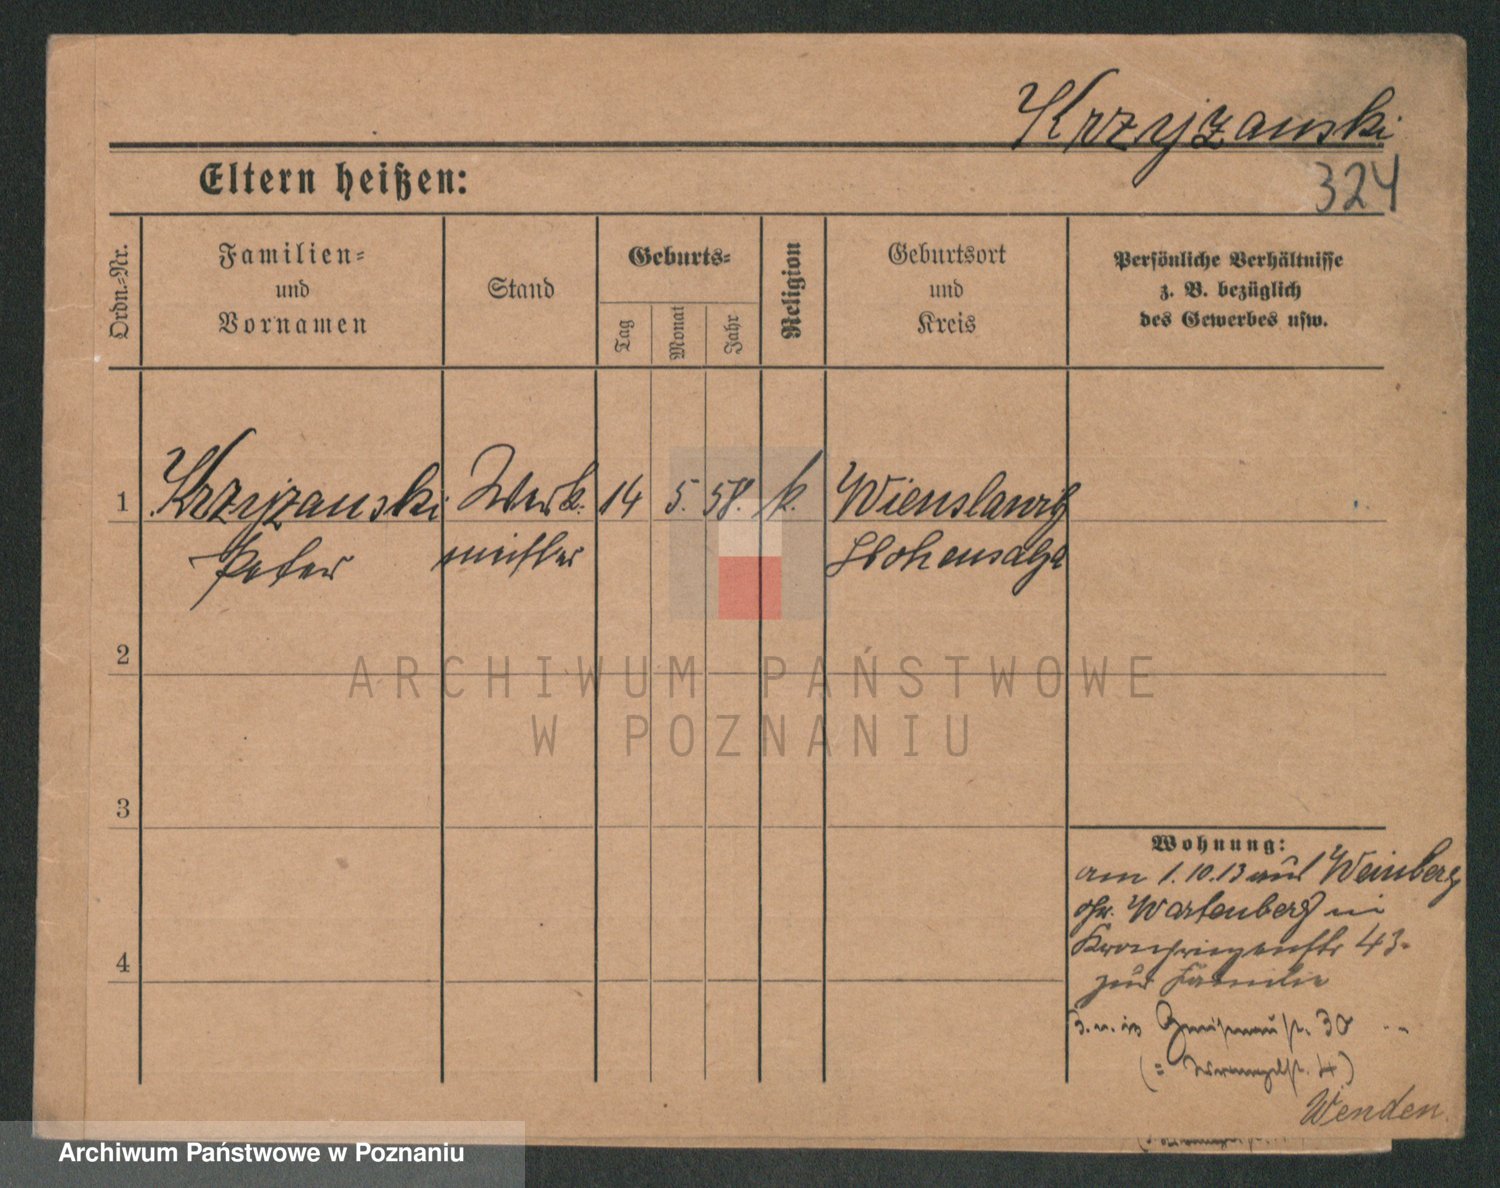 Krzyżanski
324
Eltern heißen:
Ordn.-Nr.
Familien-
und
Vornamen
Stand
Geburts-
Tag
Monat
Jahr
Religion
Geburtsort
und
Kreis
Persönliche Verhältnisse
z. B. bezüglich
des Gewerbes usw.
1
Krzyżanski
Peter
Werk-
meister
14
5.
58.
k.
Wienslawitz
Hohensalza
2
ARCHIWUM PAŃSTWOWE
W POZNANIU
3
Wohnung:
am 1.10.13 aus Weinberg
Wartenberg in
Kronprinzenstr 43.
zur Familie
Gneisenaustr. 30
(= Wrangelstr. 4)
4
Wenden
Archiwum Państwowe w Poznaniu